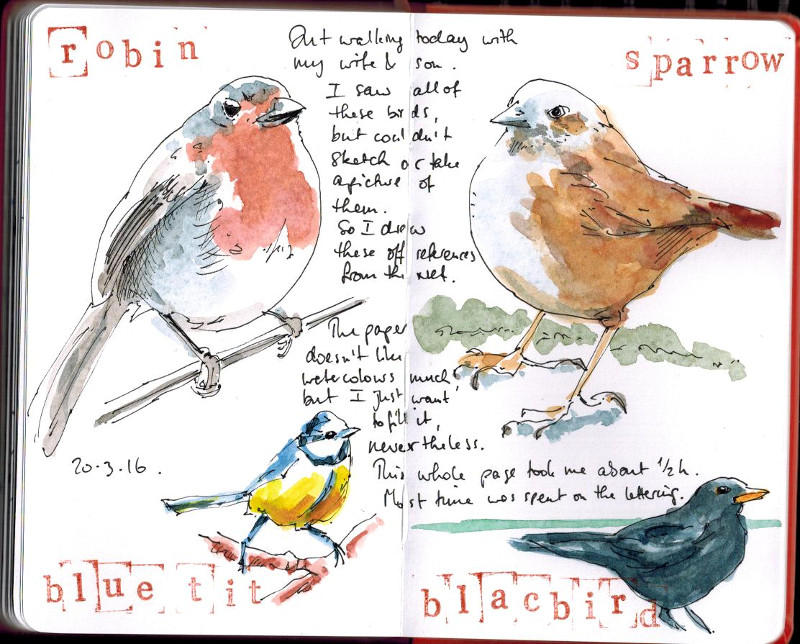 robin
sparrow
Out walking today with
my wife & son.
I saw all of
these birds,
but couldn't
sketch or take
a picture of
them.
So I drew
these off references
from the net.
The paper
doesn't like
watercolours much,
but I just want
to fill it,
nevertheless.
This whole page took me about 1/2 h.
Most time was spent on the lettering.
20.3.16.
blue tit
blacbird